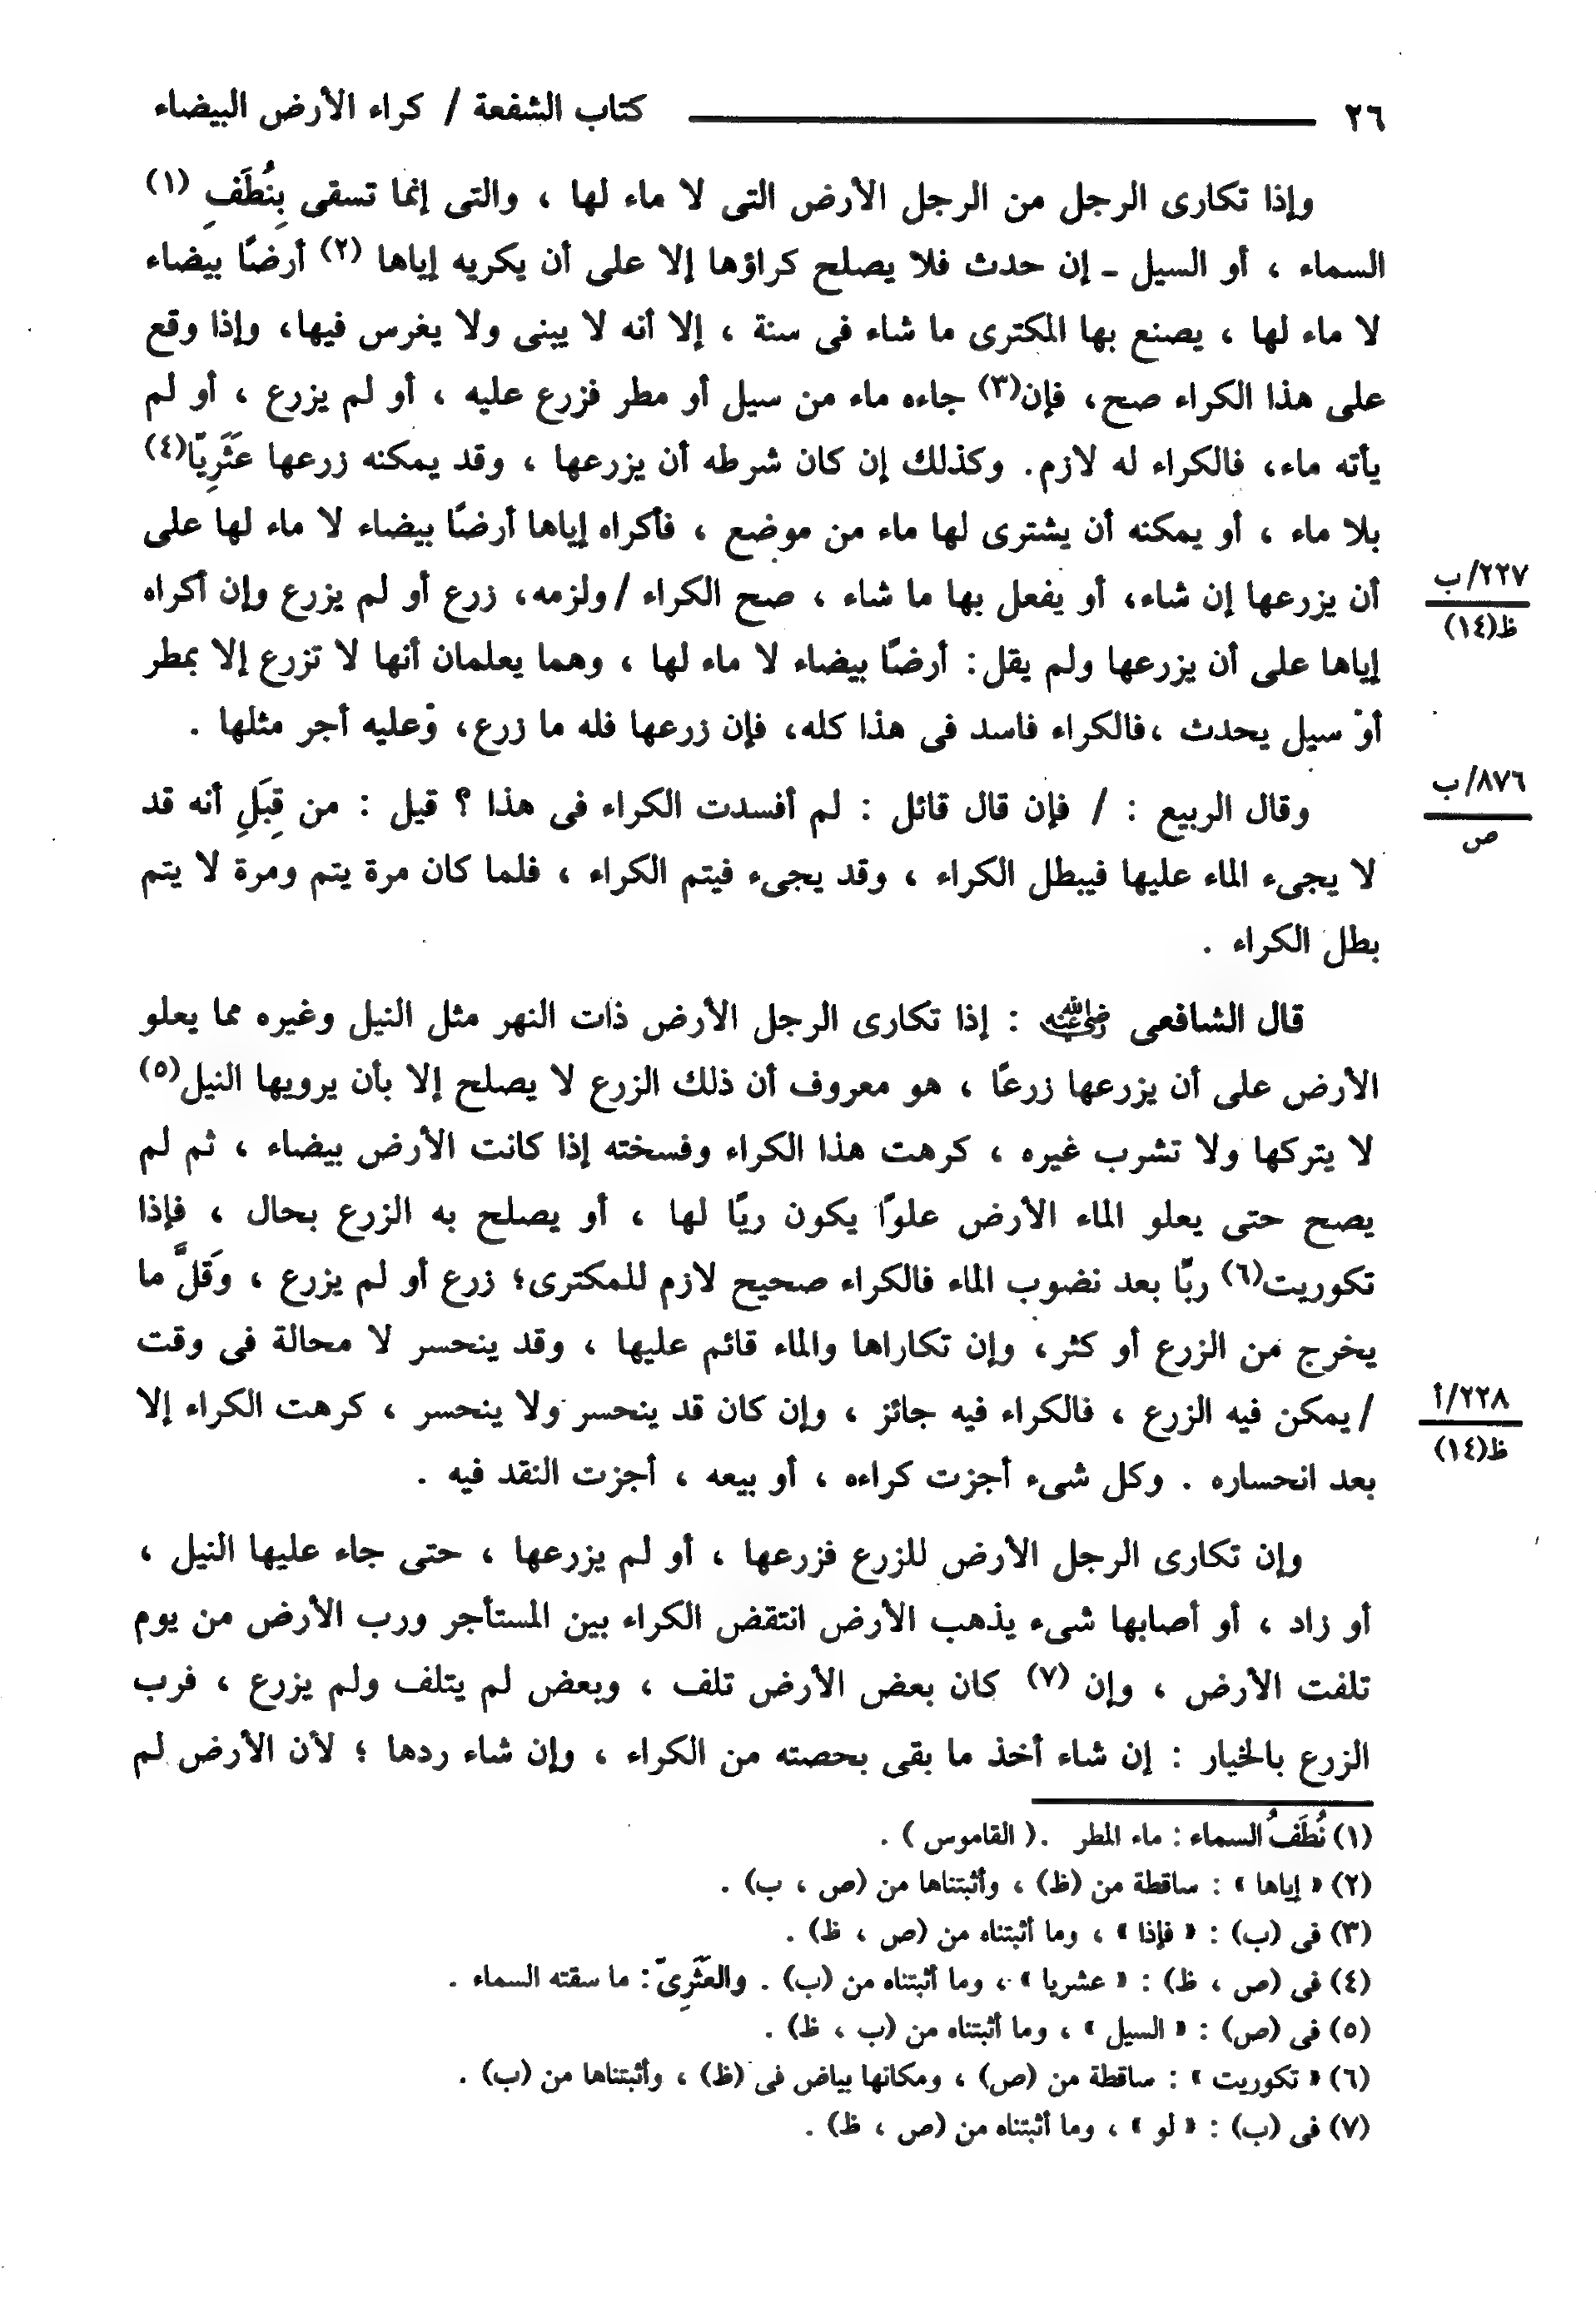 ٢٦ كتاب الشفعة / كراء الأرض البيضاء
وإذا تكارى الرجل من الرجل الأرض التى لا ماء لها ، والتى إنما تسقى بِنُطَفِ (١)
السماء ، أو السيل ـ إن حدث فلا يصلح كراؤها إلا على أن يكريه إياها (٢) أرضًا بيضاء
لا ماء لها ، يصنع بها المكترى ما شاء فى سنة ، إلا أنه لا يبنى ولا يغرس فيها، وإذا وقع
على هذا الكراء صح، فإن(٣) جاءه ماء من سيل أو مطر فزرع عليه ، أو لم يزرع ، أو لم
يأته ماء، فالكراء له لازم. وكذلك إن كان شرطه أن يزرعها ، وقد يمكنه زرعها عَثَرِيّا(٤)
بلا ماء ، أو يمكنه أن يشترى لها ماء من موضع ، فأكراه إياها أرضًا بيضاء لا ماء لها على
أن يزرعها إن شاء، أو يفعل بها ما شاء ، صح الكراء /ولزمه، زرع أو لم يزرع وإن أكراه
٢٢٧/ب
ظ(١٤)
إياها على أن يزرعها ولم يقل: أرضًا بيضاء لا ماء لها ، وهما يعلمان أنها لا تزرع إلا بمطر
أو سيل يحدث ،فالكراء فاسد فى هذا كله، فإن زرعها فله ما زرع، وعليه أجر مثلها .
وقال الربيع : / فإن قال قائل : لم أفسدت الكراء فى هذا ؟ قيل : من قِبَلِ أنه قد
٨٧٦/ب
ص
لا يجىء الماء عليها فيبطل الكراء ، وقد يجىء فيتم الكراء ، فلما كان مرة يتم ومرة لا يتم
بطل الكراء .
قال الشافعى رضي الله عنه : إذا تكارى الرجل الأرض ذات النهر مثل النيل وغيره مما يعلو
الأرض على أن يزرعها زرعًا ، هو معروف أن ذلك الزرع لا يصلح إلا بأن يرويها النيل(٥)
لا يتركها ولا تشرب غيره ، كرهت هذا الكراء وفسخته إذا كانت الأرض بيضاء ، ثم لم
يصح حتى يعلو الماء الأرض علوًا يكون ريًا لها ، أو يصلح به الزرع بحال ، فإذا
تكوريت(٦) ريًا بعد نضوب الماء فالكراء صحيح لازم للمكترى؛ زرع أو لم يزرع ، وَقَلَّ ما
يخرج من الزرع أو كثر، وإن تكاراها والماء قائم عليها ، وقد ينحسر لا محالة فى وقت
/ يمكن فيه الزرع ، فالكراء فيه جائز ، وإن كان قد ينحسر ولا ينحسر ، كرهت الكراء إلا
٢٢٨/أ
ظ(١٤)
بعد انحساره . وكل شىء أجزت كراءه ، أو بيعه ، أجزت النقد فيه .
وإن تكارى الرجل الأرض للزرع فزرعها ، أو لم يزرعها ، حتى جاء عليها النيل ،
أو زاد ، أو أصابها شىء يذهب الأرض انتقض الكراء بين المستأجر ورب الأرض من يوم
تلفت الأرض ، وإن (٧) كان بعض الأرض تلف ، وبعض لم يتلف ولم يزرع ، فرب
الزرع بالخيار : إن شاء أخذ ما بقى بحصته من الكراء ، وإن شاء ردها ؛ لأن الأرض لم
(١) نُطَفُ السماء : ماء المطر .( القاموس ) .
(٢) « إياها » : ساقطة من (ظ) ، وأثبتناها من (ص ، ب) .
(٣) فى (ب) : « فإذا » ، وما أثبتناه من (ص ، ظ) .
(٤) فى (ص ، ظ) : « عشريا » ، وما أثبتناه من (ب) . والعَثَرِىّ: ما سقته السماء .
(٥) فى (ص) : « السيل » ، وما أثبتناه من (ب ، ظ) .
(٦) « تكوريت » : ساقطة من (ص) ، ومكانها بياض فى (ظ) ، وأثبتناها من (ب) .
(٧) فى (ب) : « لو » ، وما أثبتناه من (ص ، ظ) .